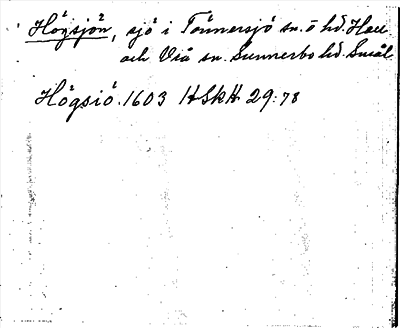 Högsjön, sjö i Tönnersjö sn. ö hd. Hall
och Viå sn. Sunnerbo hd. Smål
Högsiö 1603 HSkH 29:78